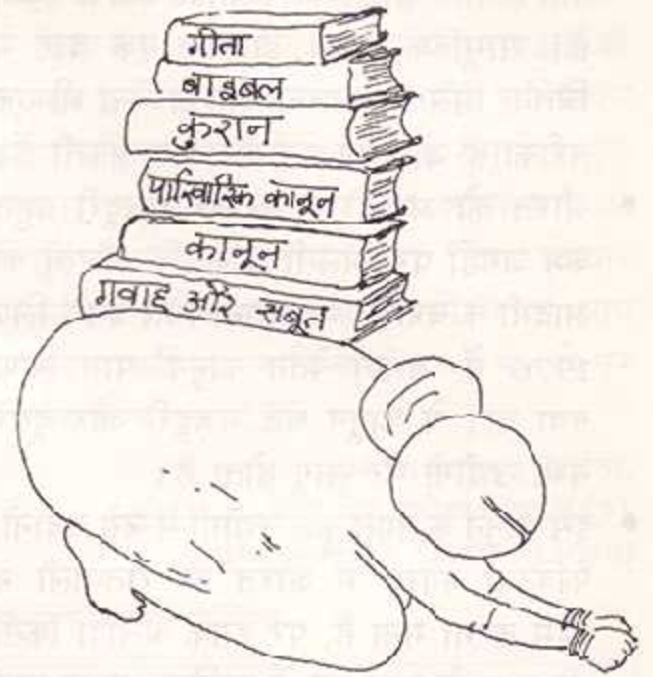 गीता
बाइबल
कुरान
पारिवारिक कानून
कानून
गवाह और सबूत